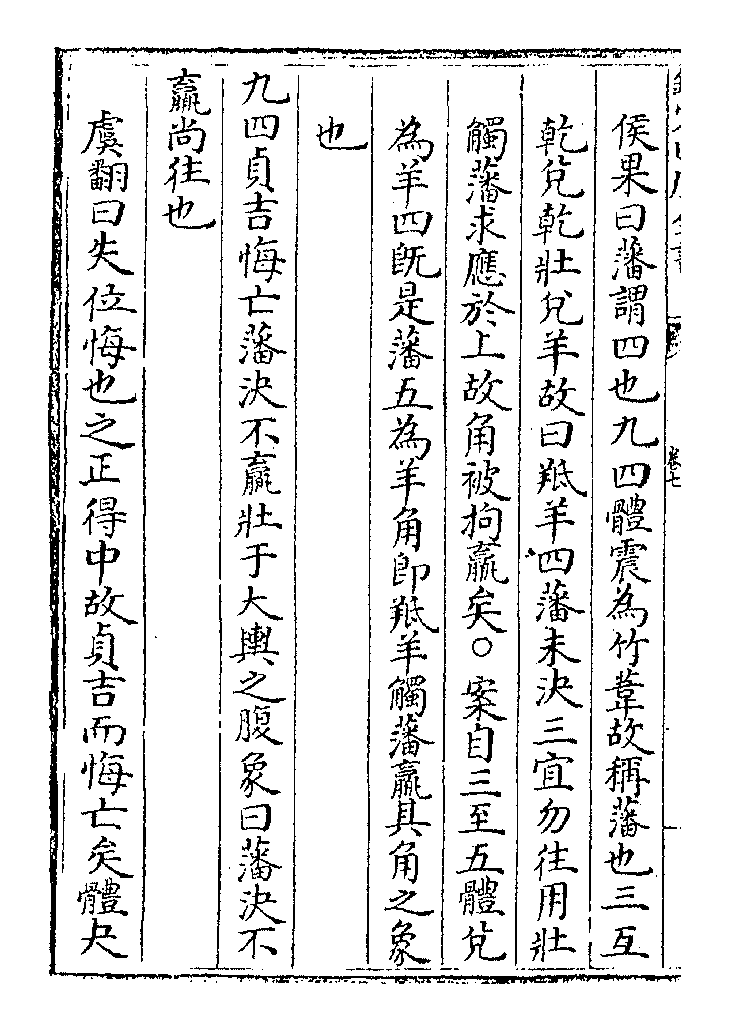 卷七
侯果曰藩謂四也九四體震為竹葦故稱藩也三互
乾兌乾壯兌羊故曰羝羊四藩未決三宜勿往用壯
觸藩求應於上故角被拘羸矣○案自三至五體兌
為羊四旣是藩五為羊角即羝羊觸藩羸其角之象
也
九四貞吉悔亡藩決不羸壯于大輿之腹象曰藩決不
羸尚往也
虞翻曰失位悔也之正得中故貞吉而悔亡矣體夬